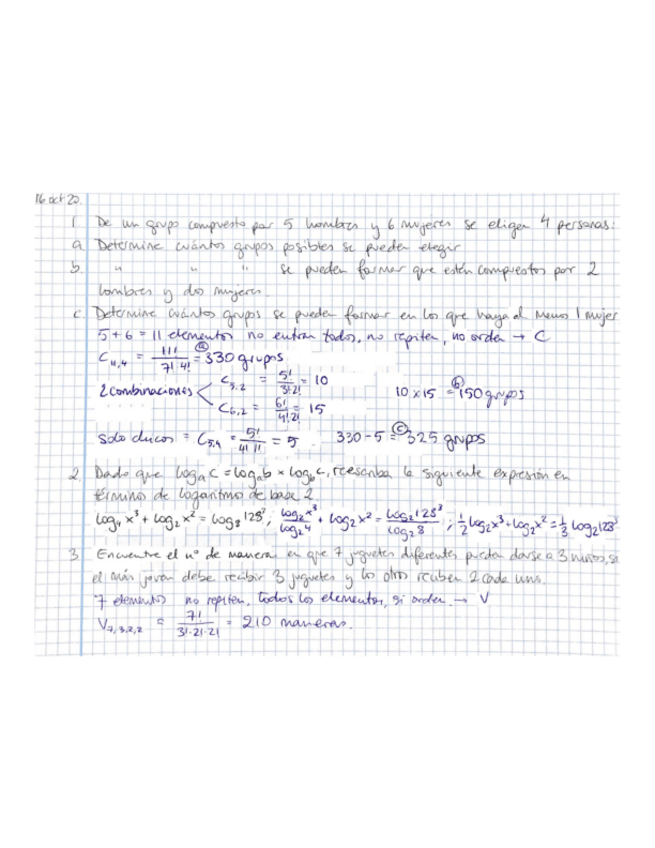 16 oct 20.
1. De un grupo compuesto por 5 hombres y 6 mujeres se eligen 4 personas:
a. Determine cuántos grupos posibles se pueden elegir
b. " " " se pueden formar que estén compuestos por 2
hombres y dos mujeres.
c. Determine cuántos grupos se pueden formar en los que haya al menos 1 mujer
5 + 6 = 11 elementos no entran todos, no repiten, no orden → C
C11,4 = 11! / 7! 4! = (a) 330 grupos
2 combinaciones < C5,2 = 5! / 3! 2! = 10
C6,2 = 6! / 4! 2! = 15
10 x 15 = (b) 150 grupos
solo chicos = C5,4 = 5! / 4! 1! = 5 330 - 5 = (c) 325 grupos
2. Dado que logₐ c = logₐ b × log_b c, reescriba la siguiente expresión en
términos de logaritmo de base 2.
log₄ x³ + log₂ x² = log₈ 128³ ; log₂ x³ / log₂ 4 + log₂ x² = log₂ 128³ / log₂ 8 ; ½ log₂ x³ + log₂ x² = ⅓ log₂ 128³
3. Encuentre el nº de manera en que 7 juguetes diferentes puedan darse a 3 niños, si
el más joven debe recibir 3 juguetes y los otros reciben 2 cada uno.
7 elementos no repiten, todos los elementos, si orden → V
V7,3,2,2 = 7! / 3!·2!·2! = 210 maneras.